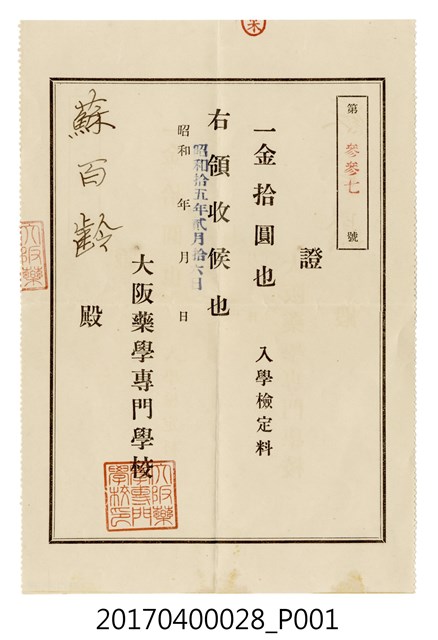 第 參參七 號
證
一金拾圓也 入學檢定料
右領收候也
昭和拾五年貳月拾六日
昭和 年 月 日
大阪藥學專門學校
大阪藥學專門學校印
蘇百齡 殿
大阪藥
20170400028_P001